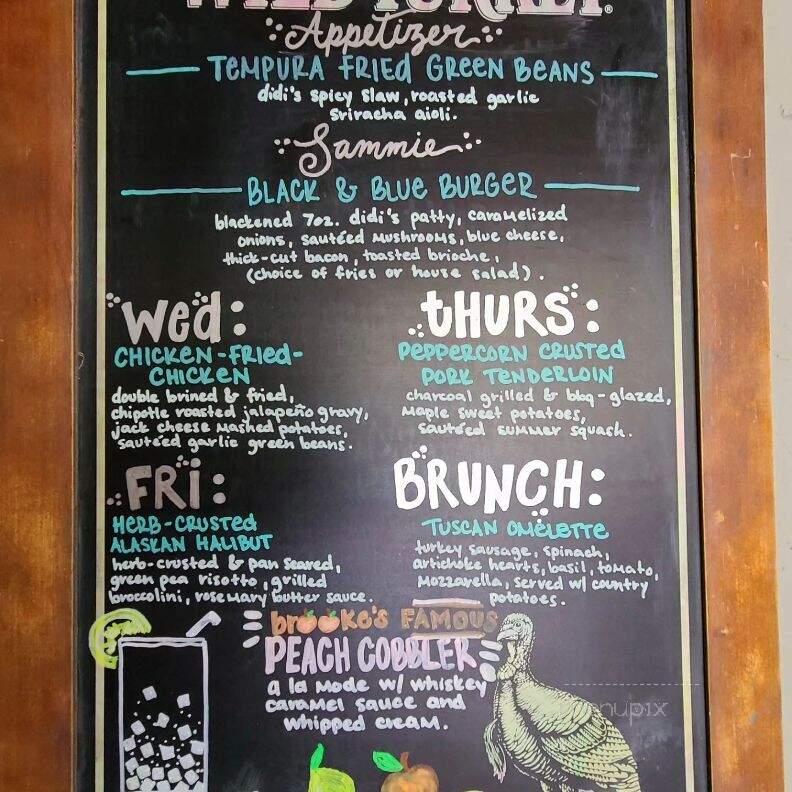 WILD TURKEY®
Appetizer
TEMPURA FRIED GREEN BEANS
didi's spicy slaw, roasted garlic
sriracha aioli.
Sammie
BLACK & BLUE BURGER
blackened 7oz. didi's patty, caramelized
onions, sautéed mushrooms, blue cheese,
thick-cut bacon, toasted brioche,
(choice of fries or house salad).
Wed:
CHICKEN-FRIED-
CHICKEN
double brined & fried,
chipotle roasted jalapeño gravy,
jack cheese mashed potatoes,
sautéed garlic green beans.
tHURS:
PEPPERCORN CRUSTED
PORK TENDERLOIN
charcoal grilled & bbq-glazed,
maple sweet potatoes,
sautéed summer squash.
FRI:
HERB-CRUSTED
ALASKAN HALIBUT
herb-crusted & pan seared,
green pea risotto, grilled
broccolini, rosemary butter sauce.
BRUNCH:
TUSCAN OMELETTE
turkey sausage, spinach,
artichoke hearts, basil, tomato,
mozzarella, served w/ country
potatoes.
brooke's FAMOUS
PEACH COBBLER
a la mode w/ whiskey
caramel sauce and
whipped cream.
menupix